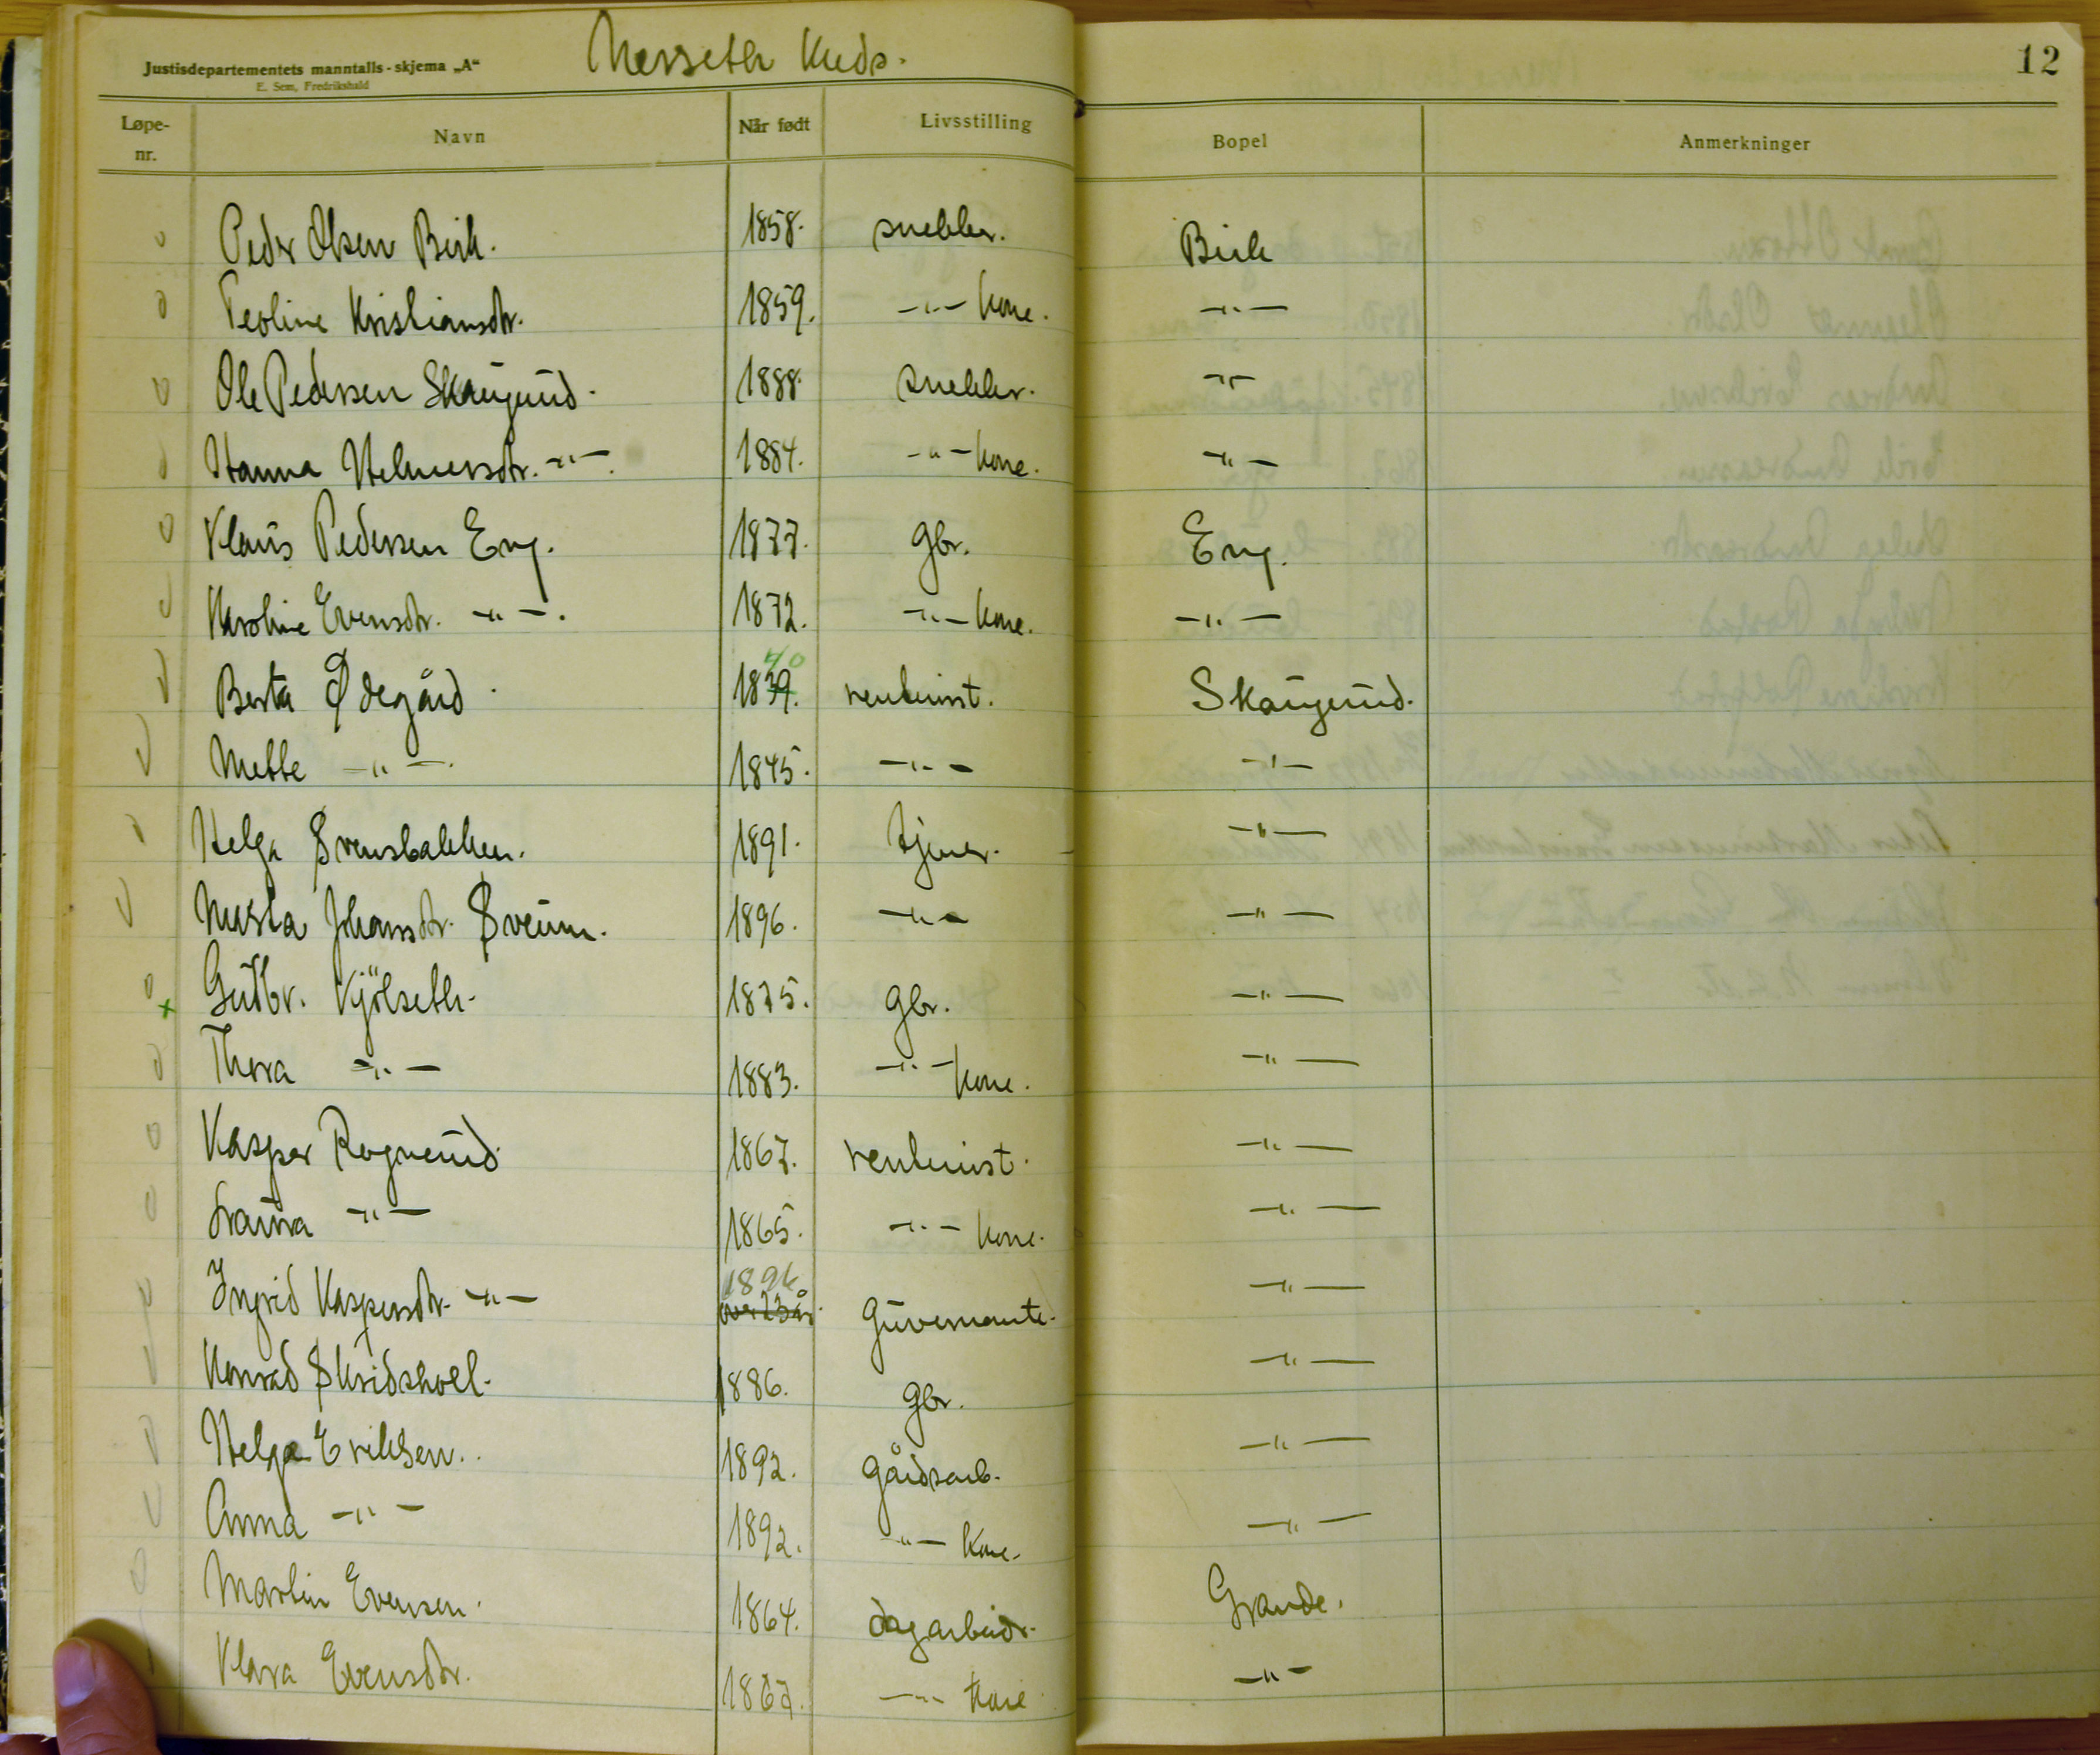 Justisdepartementets manntalls-skjema „A“
E. Sem, Fredrikshald
Messeth Kreds.
12
Løpe-nr. Navn Når født Livsstilling Bopel Anmerkninger
Peder Olsen Birk. 1858. snekker. Birk
Peoline Kristiansdtr. 1859. —"— kone. —"—
Ole Pedersen Skaugerud. 1888. snekker. —"—
Hanna Helmersdtr. —"—. 1884. —"— kone. —"—
Klaus Pedersen Eng. 1877. gbr. Eng.
Karoline Evensdtr. —"—. 1872. —"— kone. —"—
Berta Ødegård. 1839. 40 rentenist. Skaugerud.
Mette —"—. 1845. —"— —"—
Helga Svensbakken. 1891. tjener. —"—
Marta Johansdtr. Sveum. 1896. —"— —"—
Gudbr. Kjölseth. 1875. gbr. —"—
Thora —"— 1883. —"— kone. —"—
Kasper Rognerud. 1867. rentenist. —"—
Laura —"— 1865. —"— kone. —"—
Ingrid Kaspersdtr. —"— 1896 over 23 år. Guvernante. —"—
Konrad Skridshol. 1886. gbr. —"—
Helge Eriksen. 1892. gårdsarb. —"—
Anna —"— 1892. —"— Kone. —"—
Martin Evensen. 1864. dagarbeidr. Grande.
Klara Evensdtr. 1867. —"— Kone —"—